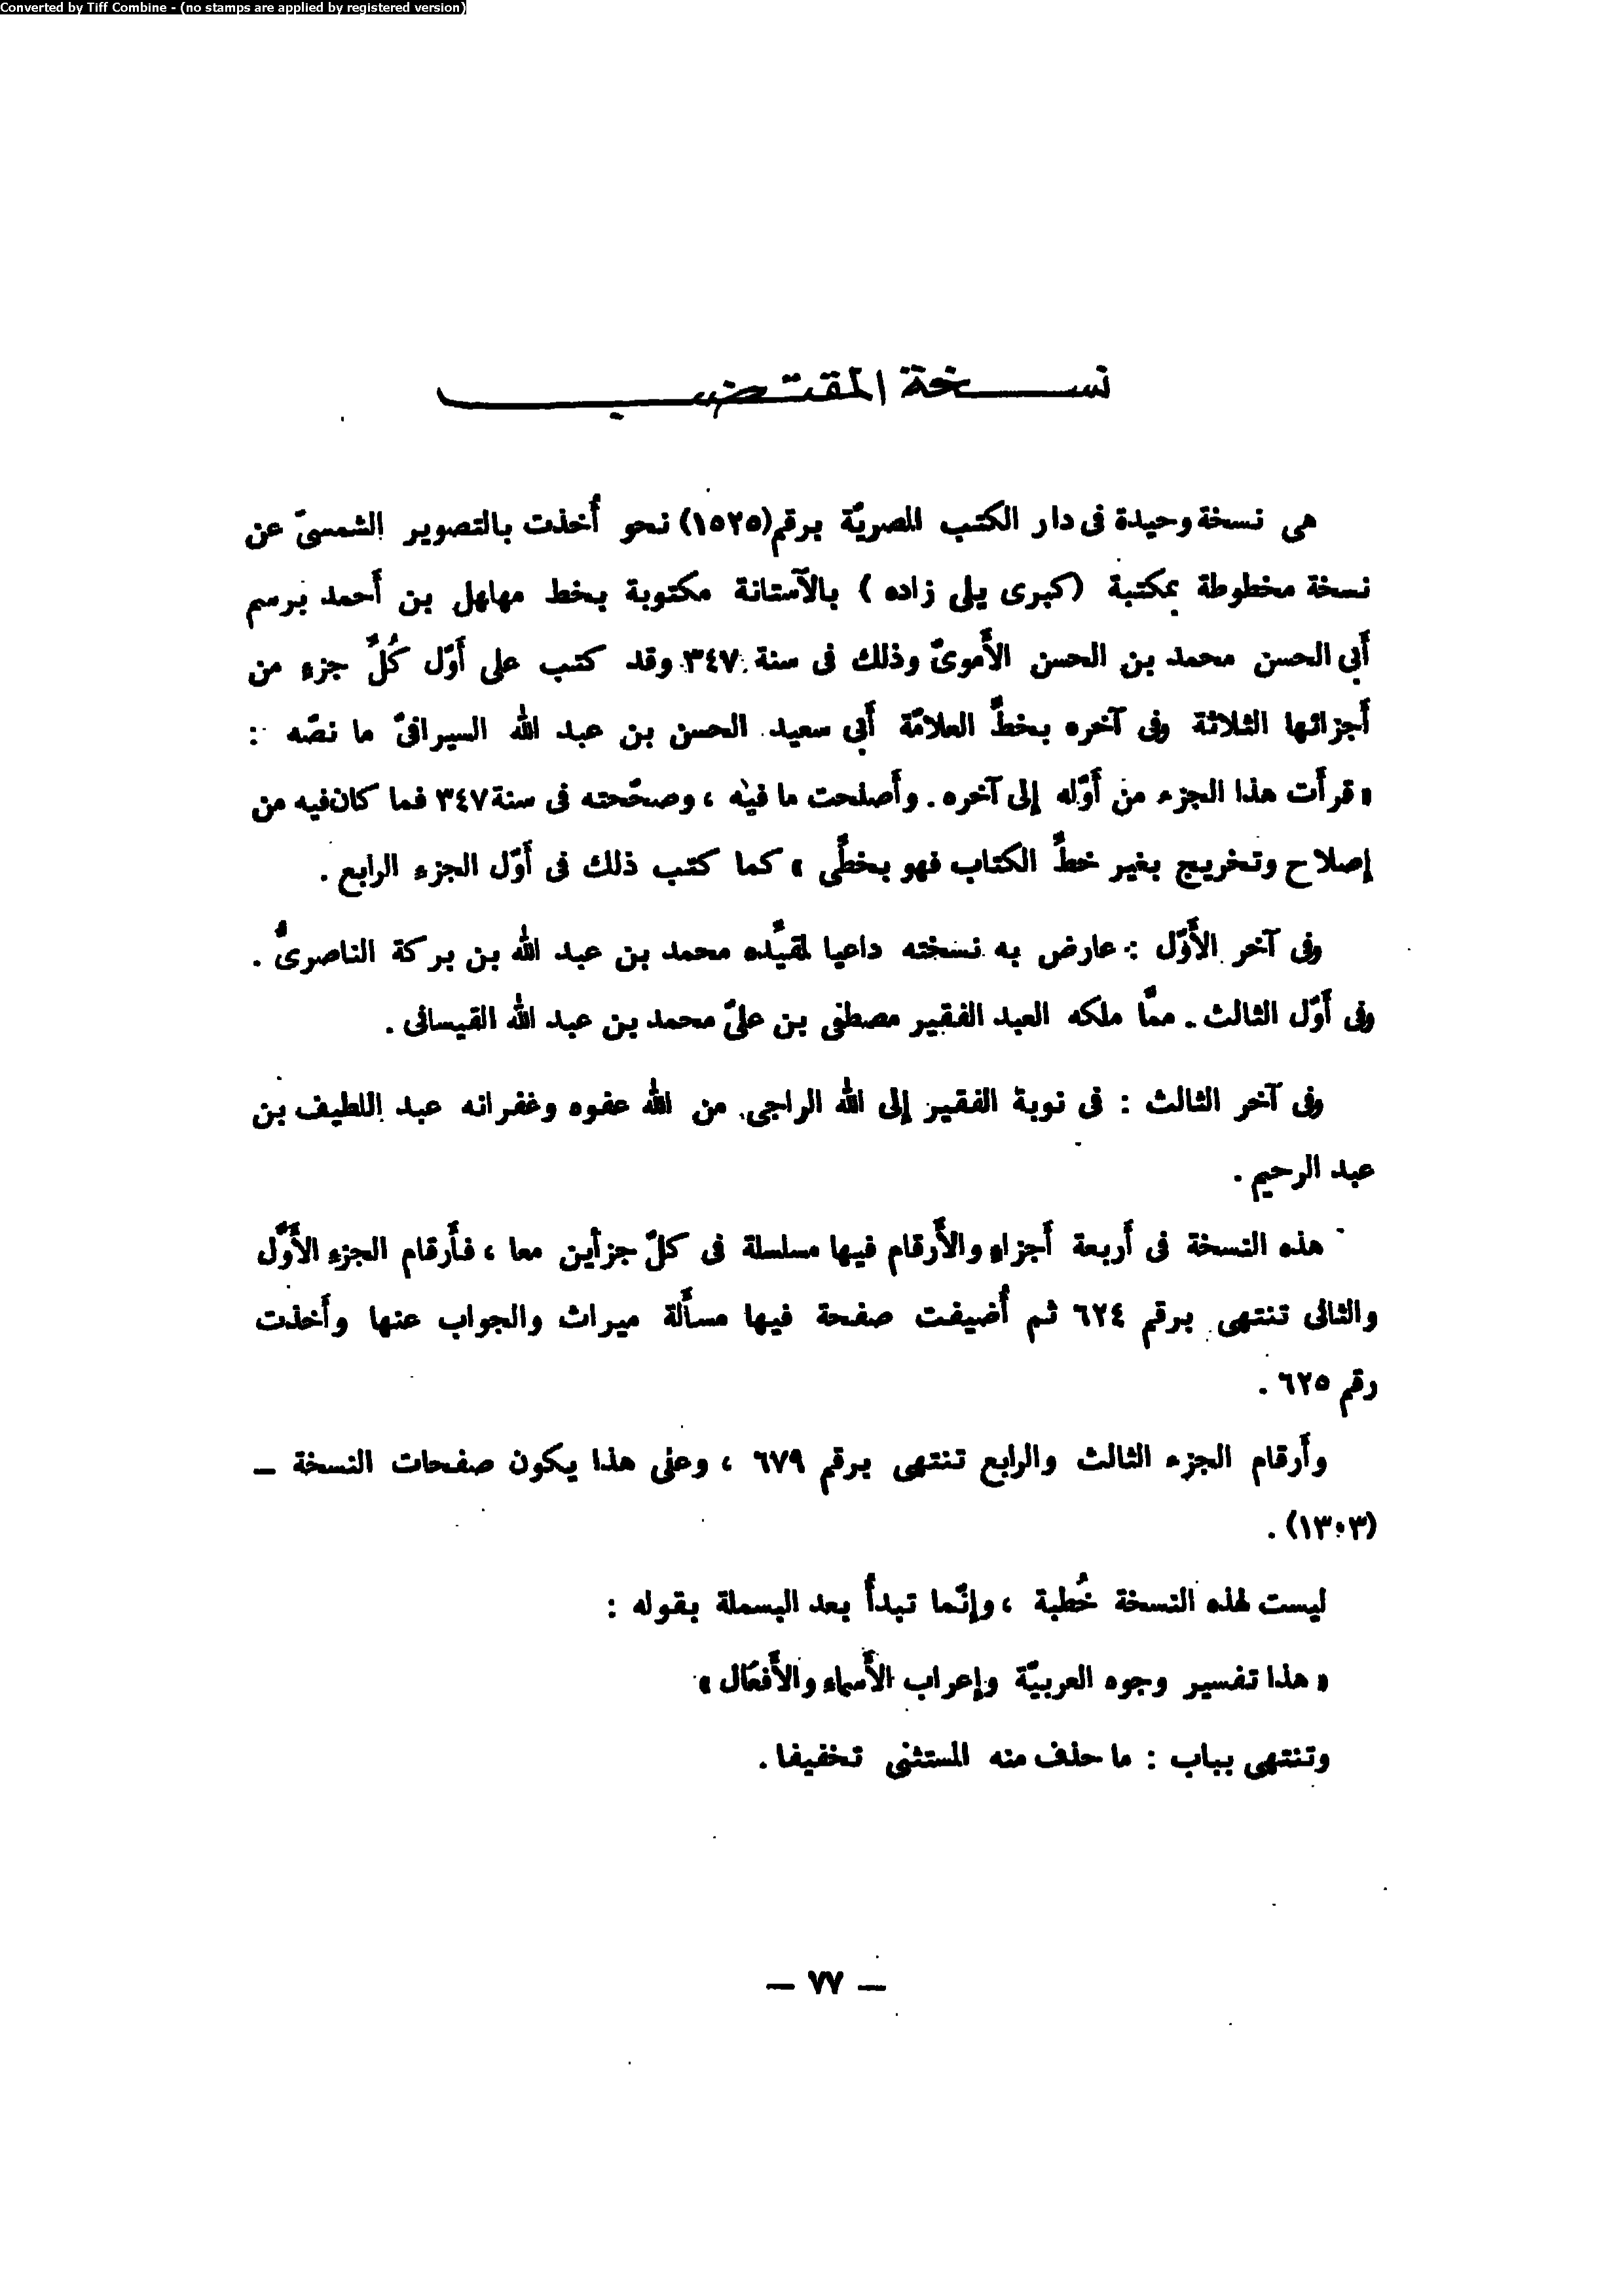 Converted by Tiff Combine - (no stamps are applied by registered version)
نسخة المقتضب
هى نسخة وحيدة فى دار الكتب المصريّة برقم (١٥٢٥) نحو أُخذت بالتصوير الشمسىّ عن
نسخة مخطوطة بمكتبة (كبرى يلى زاده) بالآستانة مكتوبة بخط مهلهل بن أَحمد برسم
أَبى الحسن محمد بن الحسن الأَموىّ وذلك فى سنة ٣٤٧ وقد كتب على أَوّل كُلِّ جزء من
أَجزائها الثلاثة وفى آخره بخطِّ العلامّة أَبى سعيد الحسن بن عبد الله السيرافىّ ما نصّه :
« قرأَت هذا الجزء من أَوّله إلى آخره . وأَصلحت ما فيه ، وصحّحته فى سنة ٣٤٧ فما كان فيه من
إصلاح وتخريج بغير خطِّ الكتاب فهو بخطِّى » كما كتب ذلك فى أَوّل الجزء الرابع .
وفى آخر الأَوّل : عارض به نسخته داعيا لمقيِّده محمد بن عبد الله بن بركة الناصرىُّ .
وفى أَوّل الثالث . ممَّا ملكه العبد الفقير مصطفى بن علىّ محمد بن عبد الله القيسافى .
وفى آخر الثالث : فى نوبة الفقير إلى الله الراجى من الله عفوه وغفرانه عبد اللطيف بن
عبد الرحيم .
هذه النسخة فى أَربعة أَجزاءٍ والأَرقام فيها مسلسلة فى كلّ جزأين معا ، فأَرقام الجزء الأَوَّل
والثانى تنتهى برقم ٦٢٤ ثم أُضيفت صفحة فيها مسأَلة ميراث والجواب عنها وأَخذت
رقم ٦٢٥ .
وأَرقام الجزء الثالث والرابع تنتهى برقم ٦٧٩ ، وعلى هذا يكون صفحات النسخة –
(١٣٠٣) .
ليست لهذه النسخة خُطبة ، وإنّما تبدأُ بعد البسملة بقوله :
« هذا تفسير وجوه العربيّة وإعراب الأَسماء والأَفعال »
وتنتهى بباب : ما حذف منه المستثنى تخفيفا .
— ٧٧ —